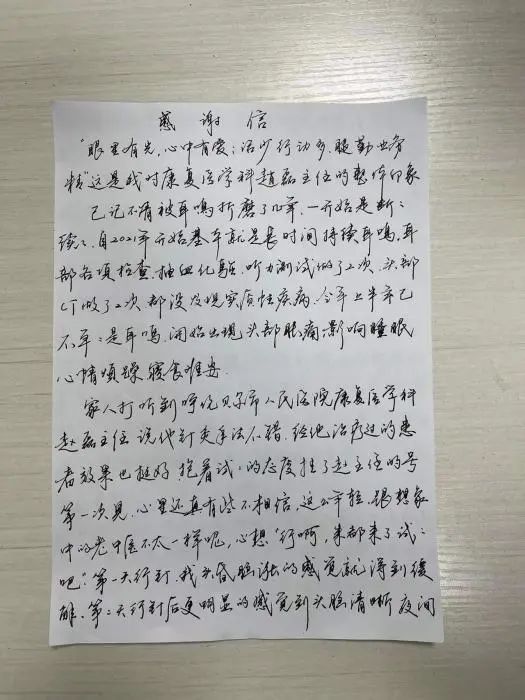 感谢信
"眼里有光,心中有爱;话少行动多、腿勤业务
精"这是我对康复医学科赵磊主任的整体印象
已记不清被耳鸣折磨了几年,一开始是断:
续:、自2021年开始基本就是长时间持续耳鸣,耳
部各项检查、抽血化验、听力测试做了2次、头部
CT做了2次都没发现实质性疾病、今年上半年已
不单:是耳鸣,开始出现头部胀痛,影响睡眠
心情烦躁寝食难安.
家人打听到呼伦贝尔市人民医院康复医学科
赵磊主任说他针灸手法不错、经他治疗过的患
者效果也挺好抱着试:的态度挂了赵主任的号
第一次见、心里还真有些不相信,这么年轻、跟想象
中的老中医不太一样呢,心想"行啊,来都来了试:
吧"第一天行针,我头昏脑胀的感觉就得到缓
解、第二天行针后更明显的感觉到头脑清晰夜间